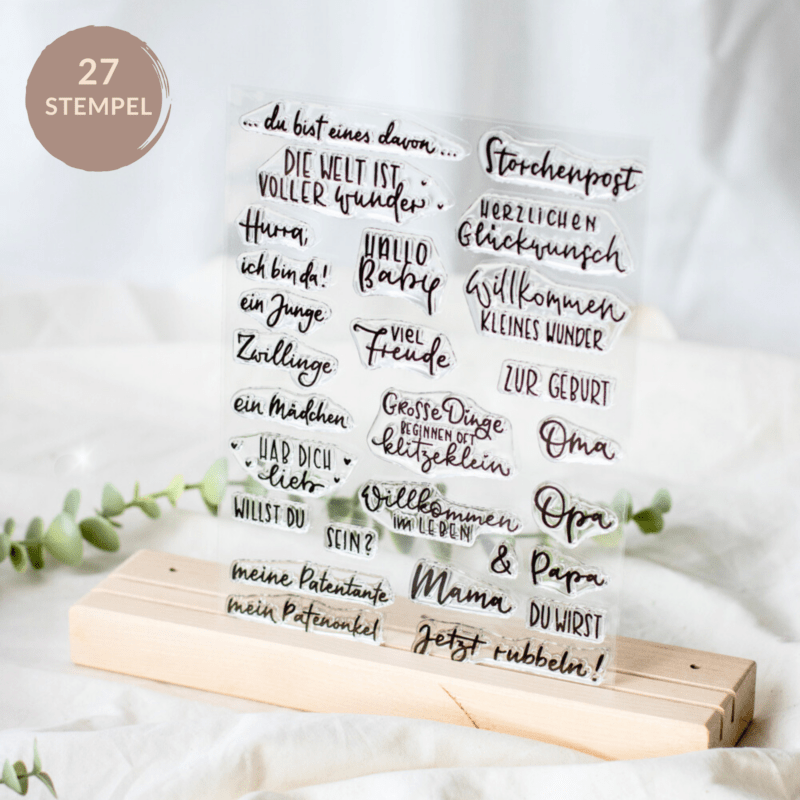 27
STEMPEL
... du bist eines davon ...
DIE WELT IST
VOLLER wunder
Storchenpost
HERZLICHEN
Glückwunsch
Hurra,
ich bin da!
HALLO
Baby
Willkommen
KLEINES WUNDER
ein Junge
Zwillinge
VIEL
Freude
ZUR GEBURT
ein Mädchen
GROSSE Dinge
BEGINNEN OFT
klitzeklein
Oma
HAB DICH
lieb
Willkommen
IM LEBEN
Opa
WILLST DU
SEIN?
& Papa
meine Patentante
Mama
DU WIRST
mein Patenonkel
Jetzt rubbeln!